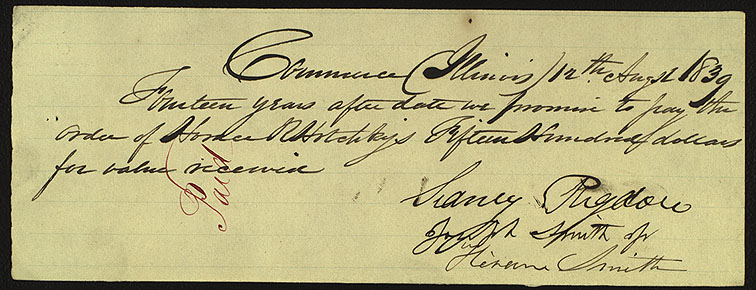 Commerce (Illinois) 12th Augst 1839
Fourteen years after date we promise to pay the
order of Horace R Hotchkiss Fifteen Hundred dollars
for value received
Paid
Sidney Rigdon
Joseph Smith Jr
Hiram Smith